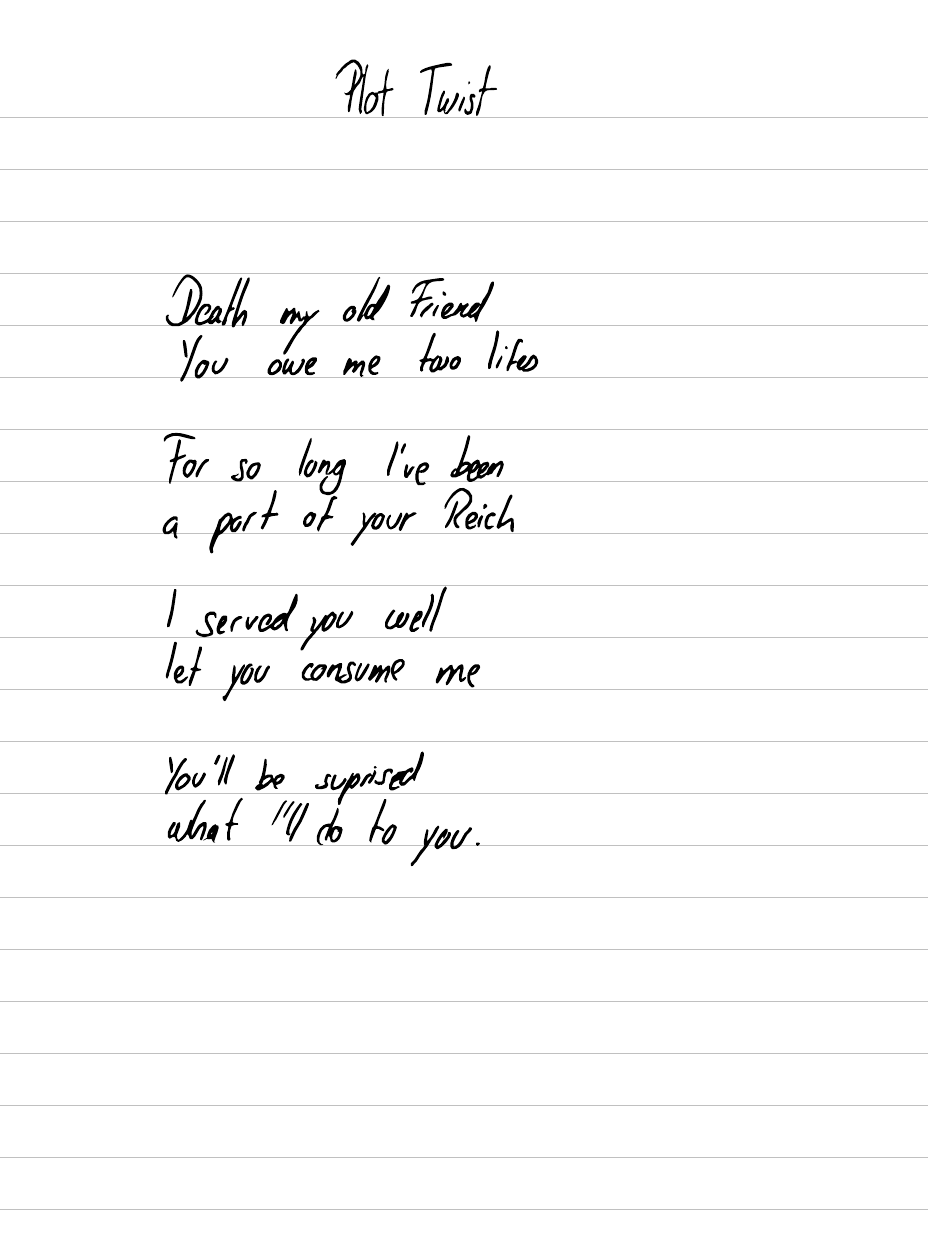 Plot Twist
Death my old Friend
You owe me two lifes
For so long I've been
a part of your Reich
I served you well
let you consume me
You'll be suprised
what I'll do to you.